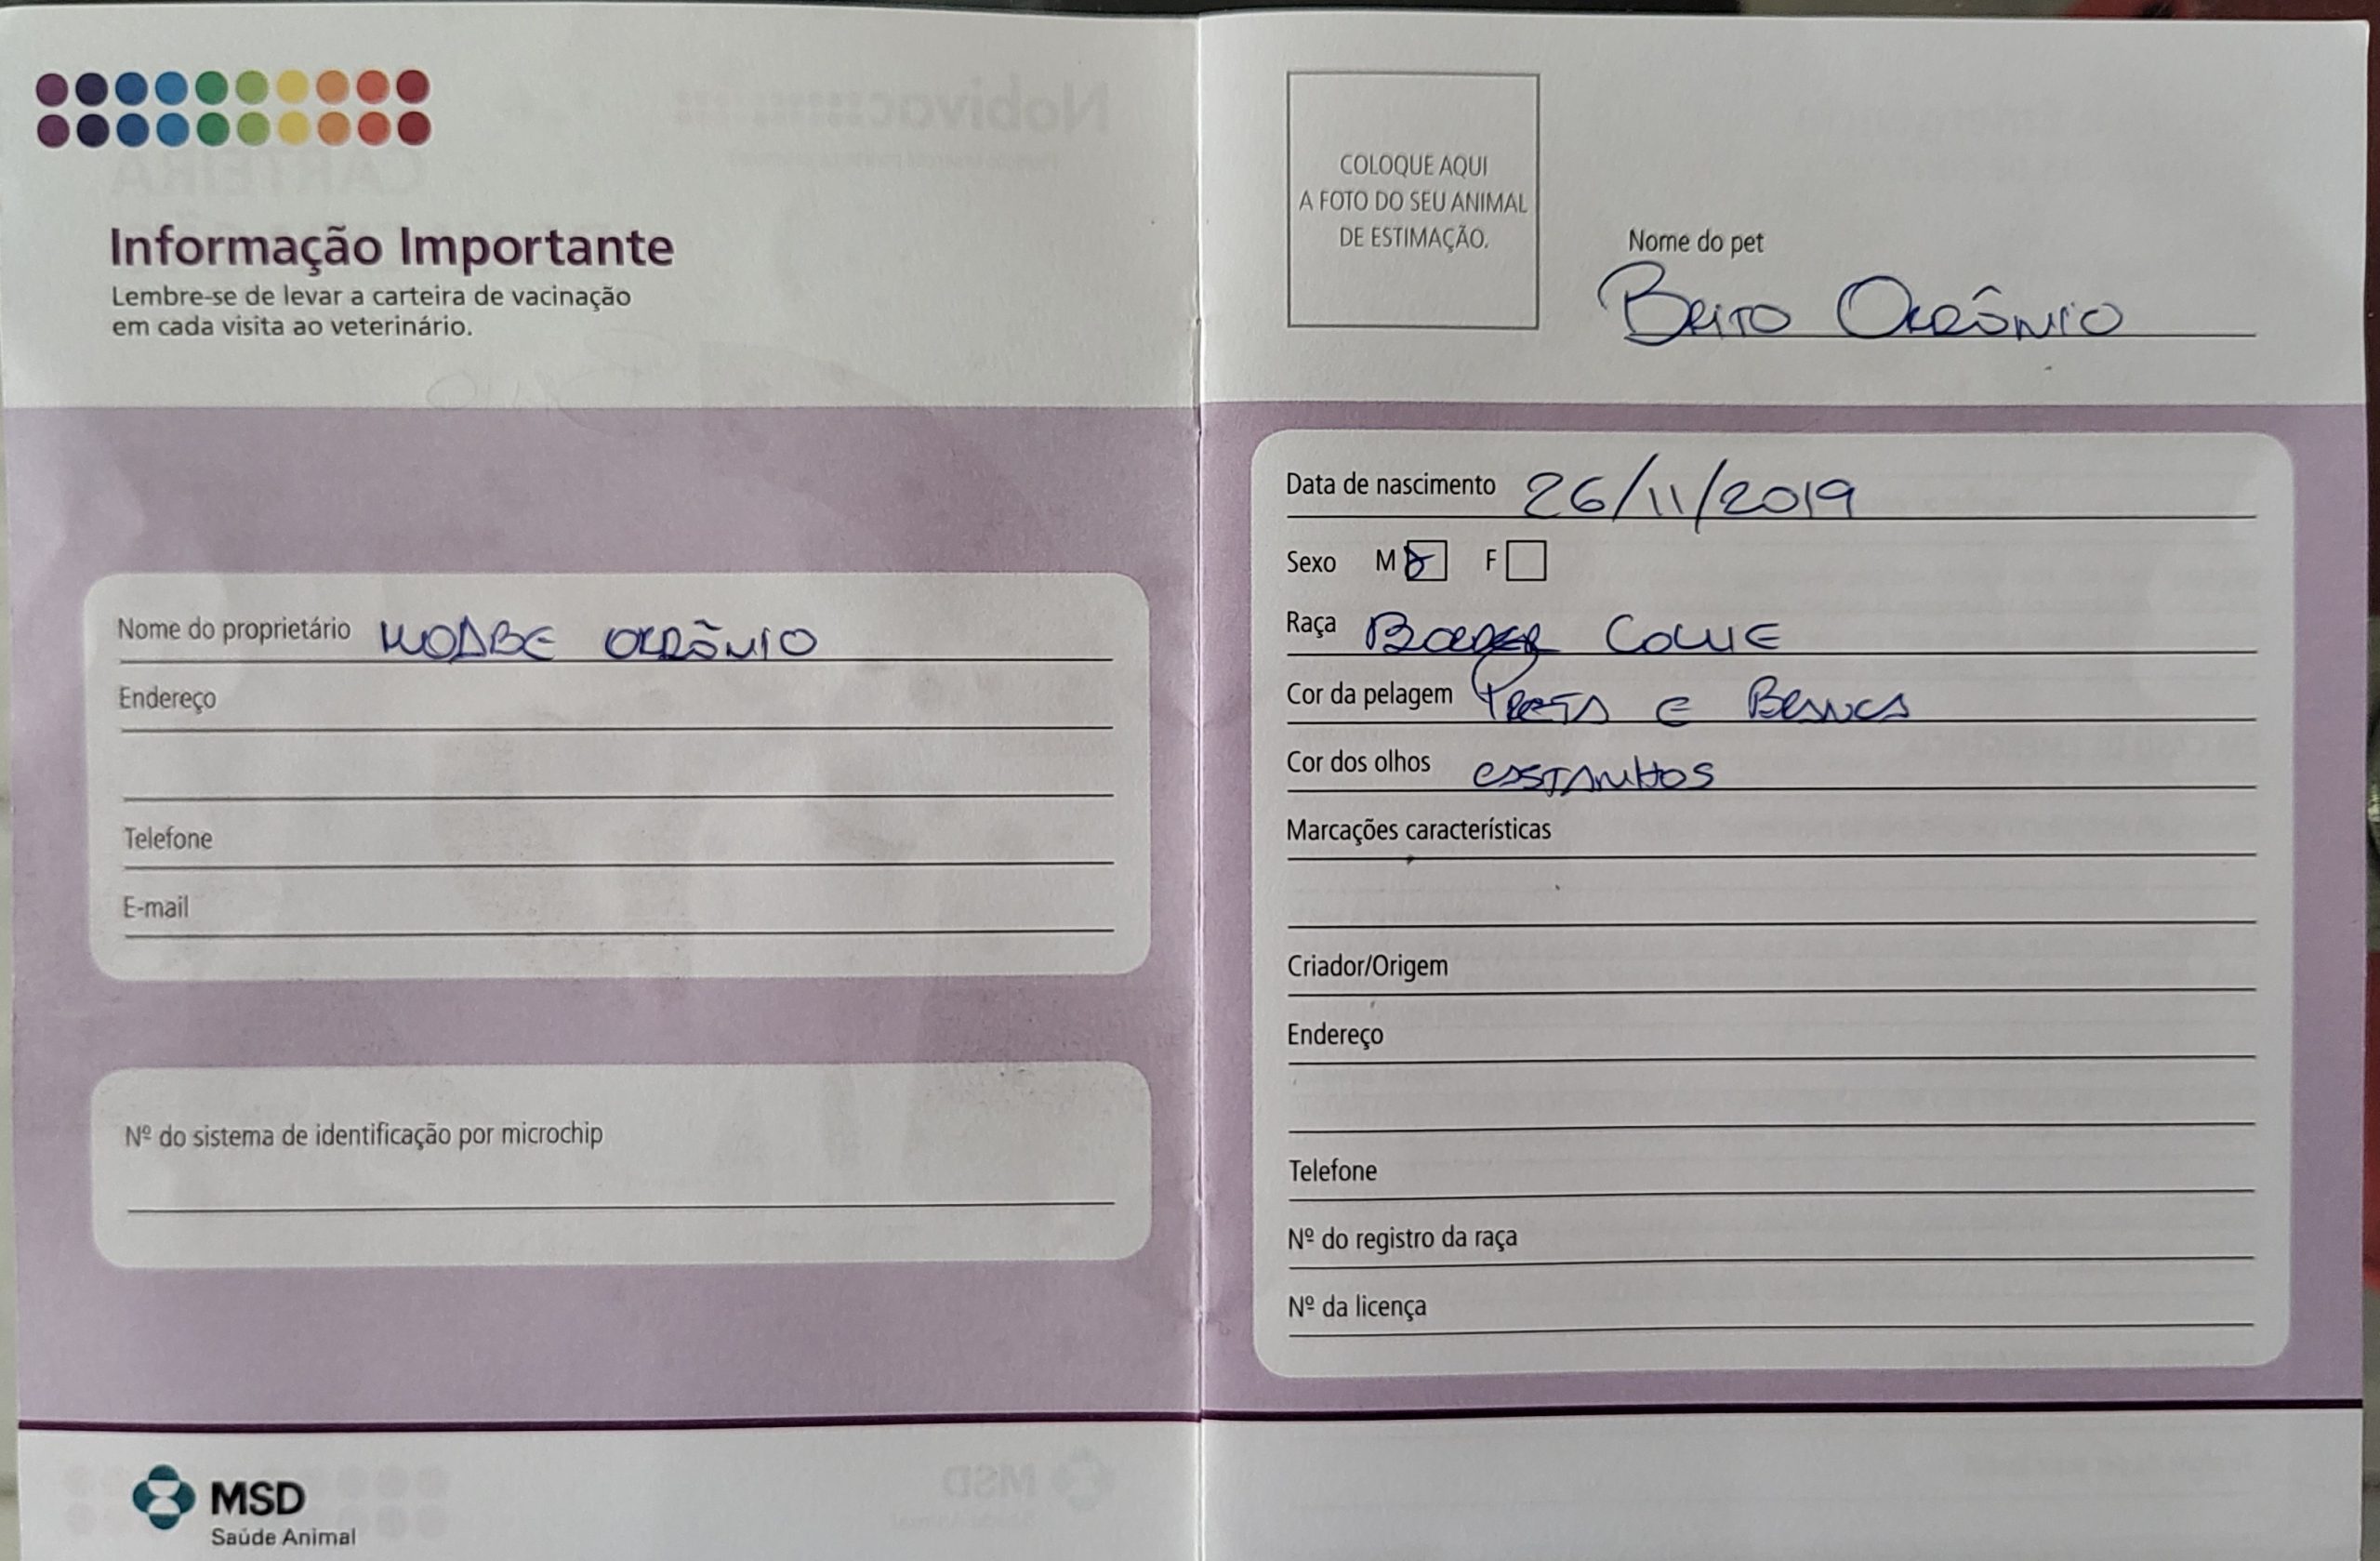 Informação Importante
Lembre-se de levar a carteira de vacinação
em cada visita ao veterinário.
Nome do proprietário MOABE ORRÔNIO
Endereço
Telefone
E-mail
Nº do sistema de identificação por microchip
MSD
Saúde Animal
COLOQUE AQUI
A FOTO DO SEU ANIMAL
DE ESTIMAÇÃO.
Nome do pet
BRITO
Data de nascimento 26/11/2019
Sexo M F
Raça BORDER COLLIE
Cor da pelagem PRETA E BRANCA
Cor dos olhos CASTANHOS
Marcações características
Criador/Origem
Endereço
Telefone
Nº do registro da raça
Nº da licença